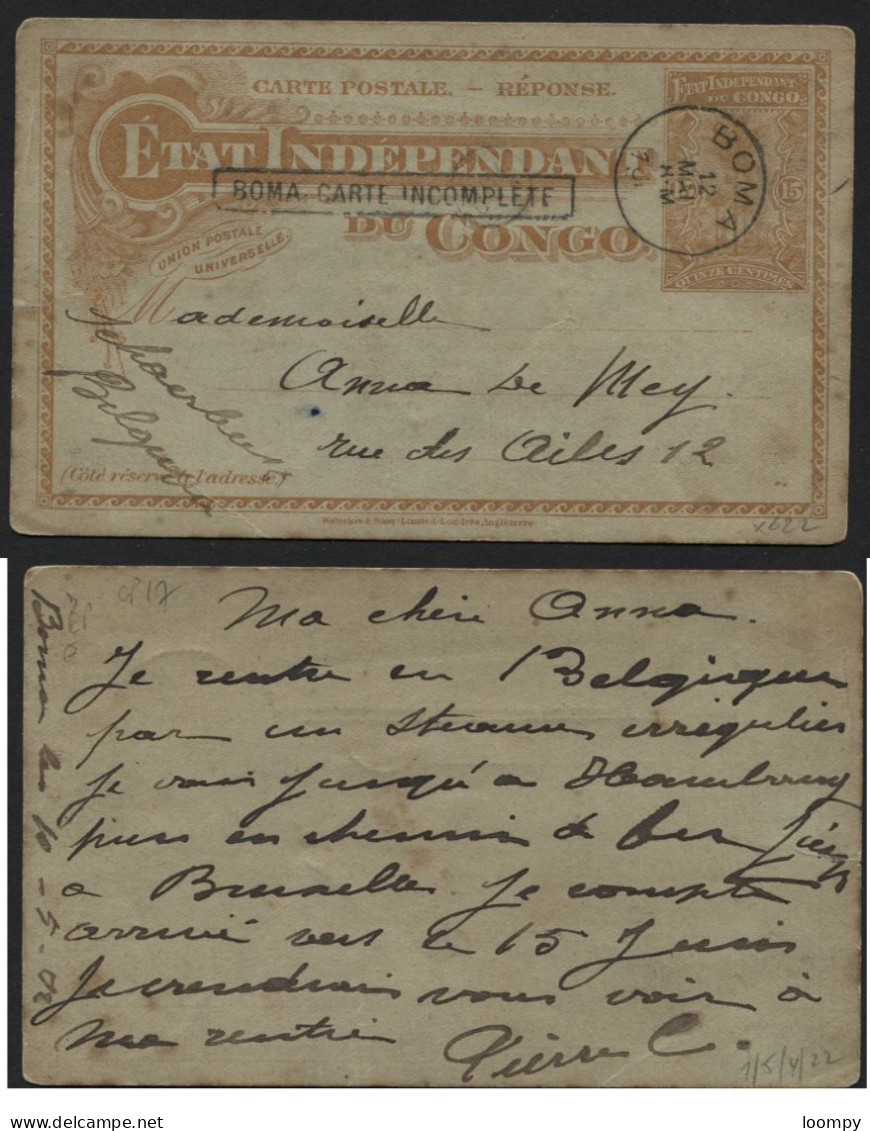 CARTE POSTALE. — RÉPONSE.
ÉTAT INDÉPENDANT
DU CONGO.
UNION POSTALE
UNIVERSELLE
ETAT INDÉPENDANT
DU CONGO.
15
QUINZE CENTIMES
BOMA
12
MAI
BOMA. CARTE INCOMPLÈTE
Mademoiselle
Anna De Mey.
rue des Ailes 12
Schaerbeek
Belgique
(Côté réservé à l'adresse)
Waterlow & Sons Limited, Londres, Angleterre
x622
CP17
Boma le 10-5-02
Ma chère Anna.
Je rentre en Belgique
par un steamer irrégulier
je vais jusqu'à Hambourg
puis en chemin de fer
à Bruxelles je compte
arrivé vers le 15 Juin
Je viendrais vous voir à
ma rentrée
Pierre C.
1/5/4/22
loompy